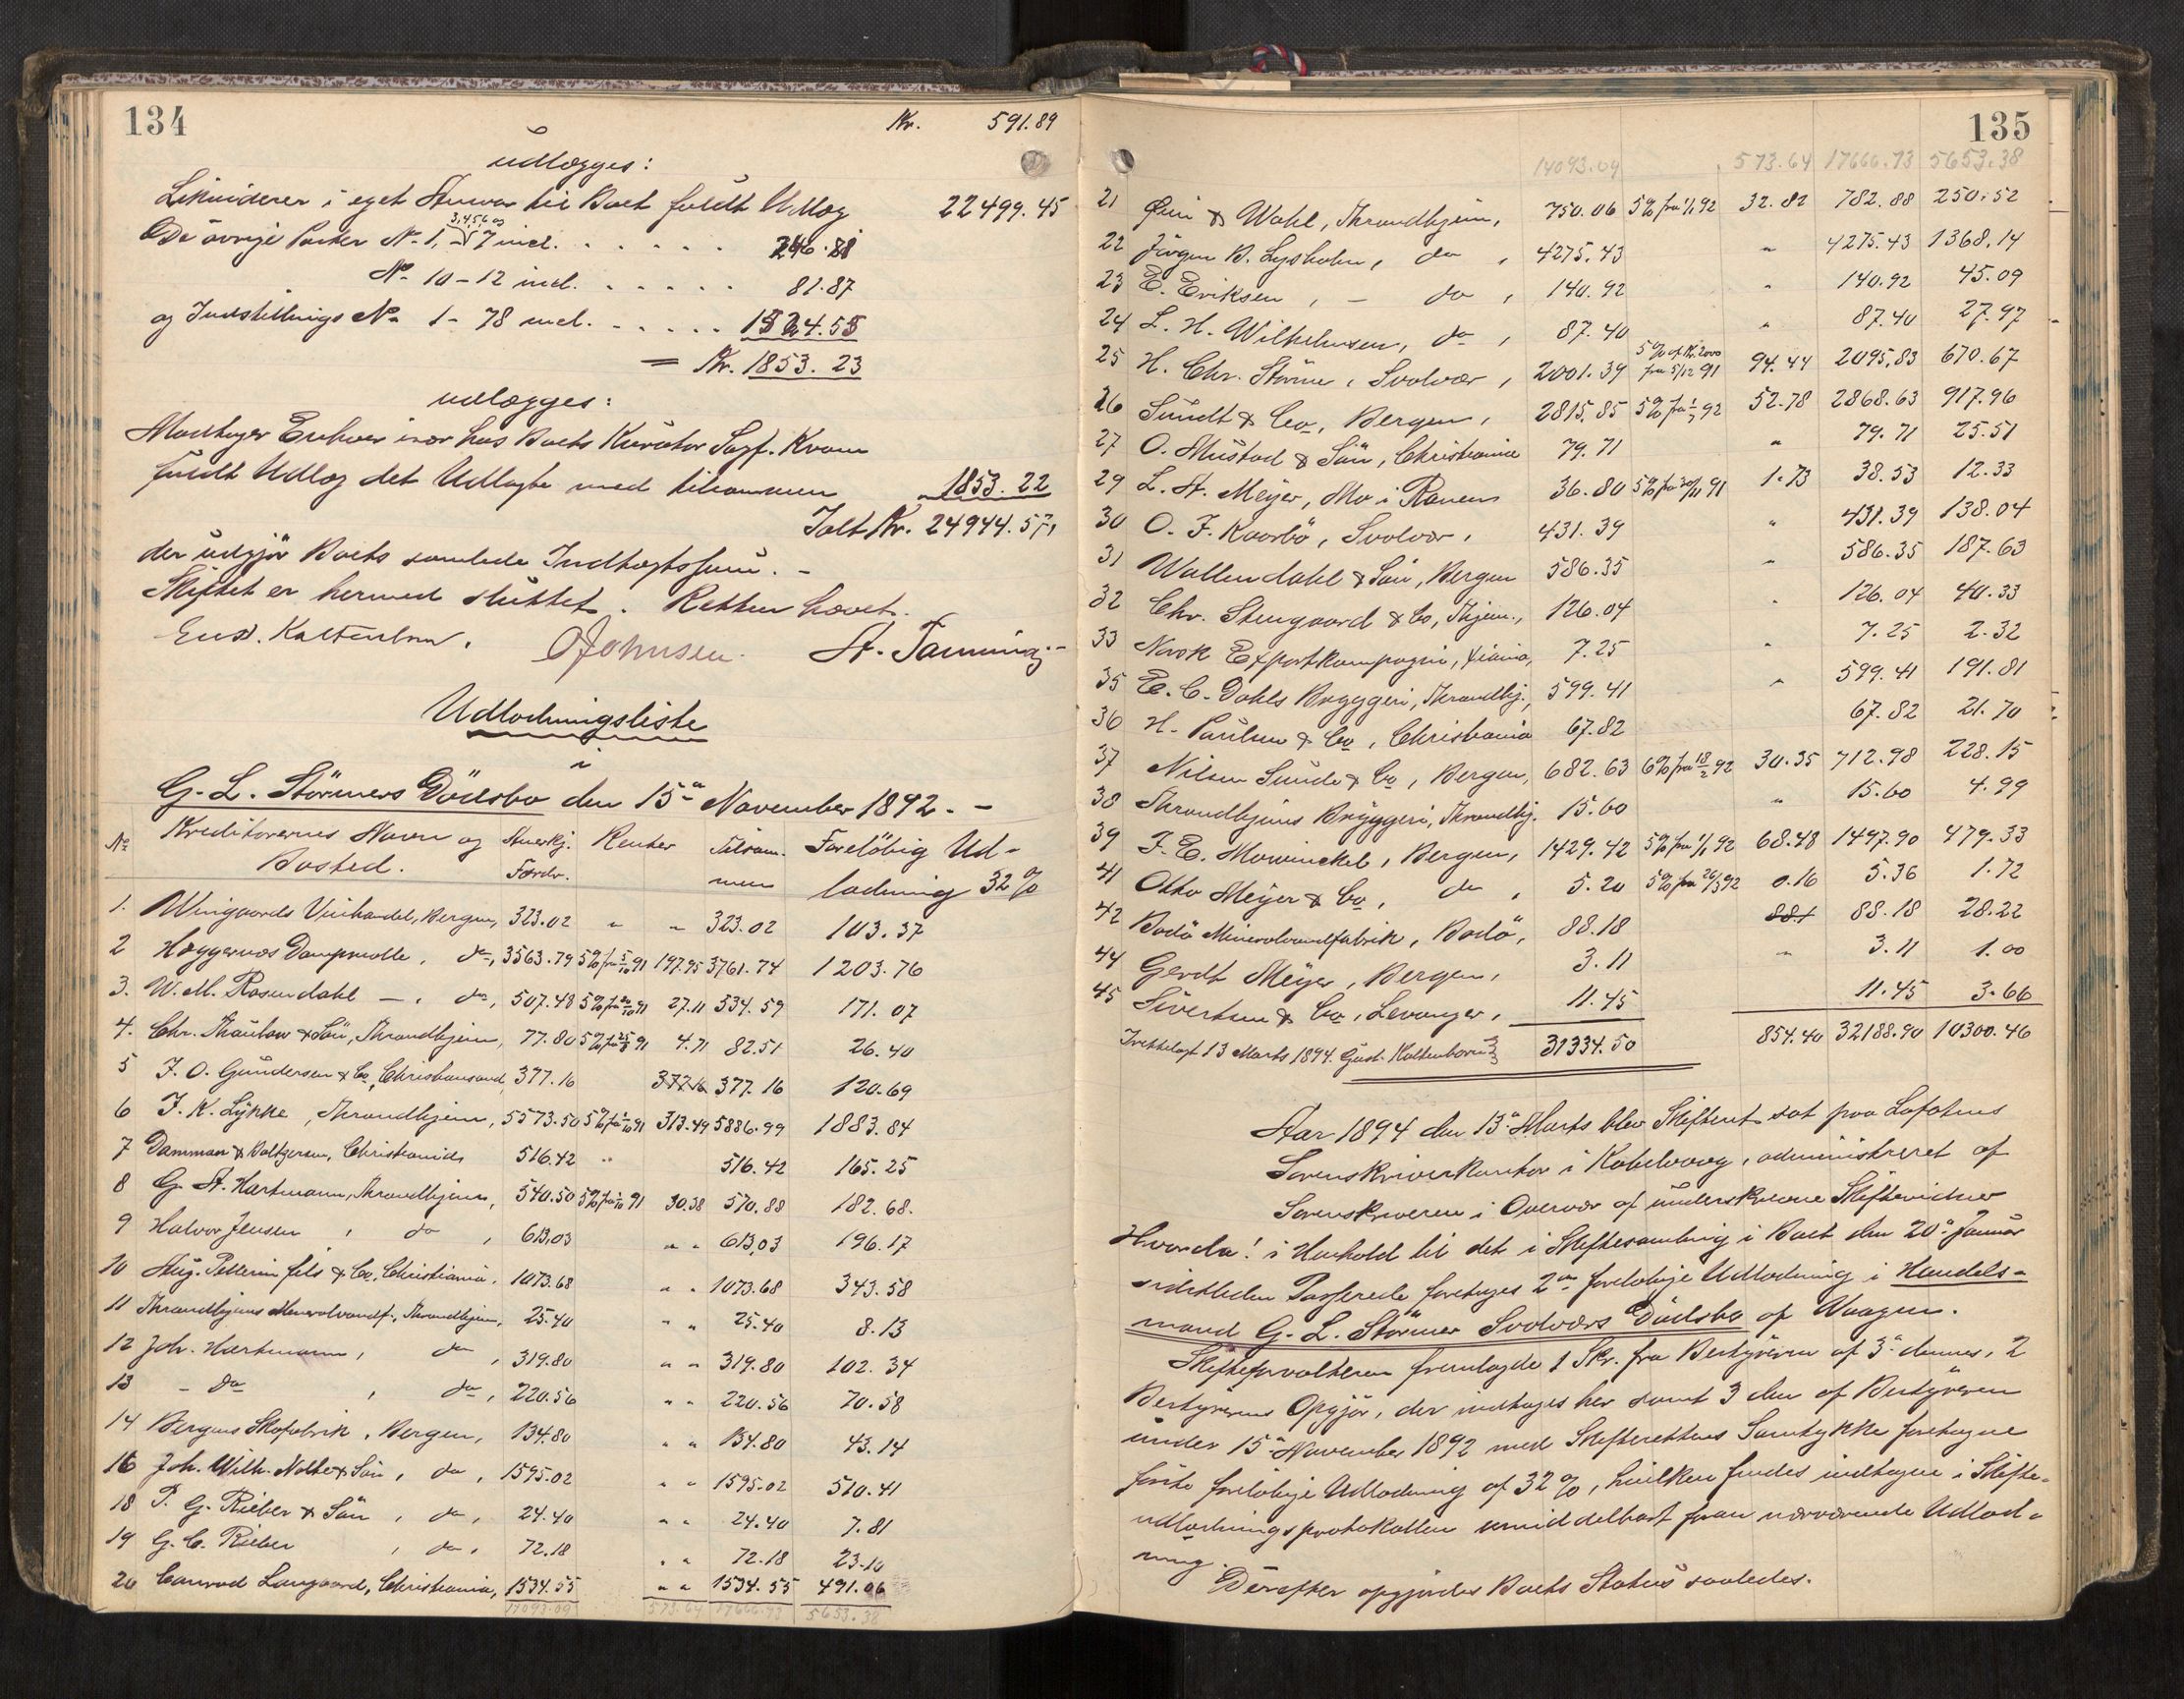 134
Kr. 591.89
udlægges:
Likviderer i eget Ansvar til Boet fuldt Udlæg 22499.45
De övrige Poster No 1, 3, 4, 5, 6 og 7 incl. 246.81
No 10-12 incl. 81.87
og Indstillings No 1-78 incl. 1524.55
= Kr. 1853.23
udlægges:
Modtager Enhver især hos Boets Kurator Sagf. Kvam
fuldt Udlæg det Udlagte med tilsammen 1853.22
Ialt Kr. 24944.57,
der udgjör Boets samlede Indtægtssum. -
Skiftet er hermed sluttet. Retten hævet.
Gust. Kaltenborn. OJohnsen. A. Tanning.-
Udlodningsliste
i
G. L. Störmers Dödsbo den 15de November 1892. -
No Kreditorernes Navn og Bosted. Anerkj. Fordr. Renter Tilsammen Foreløbig Udlodning 32%
1. Wingaards Vinhandel, Bergen, 323.02 " " 323.02 103.37
2 Hæggernæs Dampmølle, do, 3563.79 5% fra 5/10 91 197.95 3761.74 1203.76
3. W. M. Rosendahl -, do, 507.48 5% fra 20/10 91 27.11 534.59 171.07
4. Chr. Thaulow & Sön, Throndhjem, 77.80 5% fra 25/8 91 4.71 82.51 26.40
5 J. O. Gundersen & Co, Christiansand, 377.16 377.16 377.16 120.69
6 J. K. Lykke, Throndhjem, 5573.50 5% fra 1/10 91 313.49 5886.99 1883.84
7 Damman & Boltzersen, Christiania, 516.42 " 516.42 165.25
8 G. A. Hartmann, Throndhjem, 540.50 5% fra 1/10 91 30.38 570.88 182.68.
9 Halvor Jensen, do, 613,03 " " 613,03 196.17
10 Aug. Pellerin fils & Co, Christiania, 1073.68 " " 1073.68 343.58
11 Throndhjems Mineralvandf., Throndhjem, 25.40 " " 25.40 8.13
12 Joh. Hartmann, do, 319.80 " " 319.80 102.34
13 - do, do, 220.56 " " 220.56 70.58
14 Bergens Skofabrik, Bergen, 134.80 " " 134.80 43.14
16 Joh. Wilh. Nolte & Sön, do, 1595.02 " " 1595.02 510.41
18 P. G. Rieber & Sön, do, 24.40 " " 24.40 7.81
19 G. C. Rieber, do, 72.18 " " 72.18 23.10
20 Conrad Langaard, Christiania, 1534.55 " " 1534.55 491.06
17093.09 573.64 17666.73 5653.38
135
14093.09 573.64 17666.73 5653.38
21 Öien & Wahl, Throndhjem, 750.06 5% fra 1/1 92 32.82 782.88 250.52
22 Jörgen B. Lysholm, do, 4275.43 " 4275.43 1368.14
23 E. Eriksen, - do, 140.92 " 140.92 45.09
24 L. H. Wilhelmsen, do, 87.40 " 87.40 27.97
25 H. Chr. Störmer, Svolvær, 2001.39 5% af Kr. 2000 fra 5/12 91 94.44 2095.83 670.67
26 Sundt & Co, Bergen, 2815.85 5% fra 1/7 92 52.78 2868.63 917.96
27 O. Mustad & Sön, Christiania 79.71 " 79.71 25.51
29 L. A. Meyer, Mo i Ranen 36.80 5% fra 30/11 91 1.73 38.53 12.33
30 O. F. Kaarbö, Svolvær, 431.39 " 431.39 138.04
31 Wallendahl & Sön, Bergen 586.35 " 586.35 187.63
32 Chr. Stengaard & Co, Thjem., 126.04 " 126.04 40.33
33 Norsk Exportkompagni, Xiania, 7.25 " 7.25 2.32
35 E. C. Dahls Bryggeri, Throndhj., 599.41 " 599.41 191.81
36 H. Paulsen & Co, Christiania 67.82 67.82 21.70
37 Nilsen Sunde & Co, Bergen, 682.63 6% fra 18/2 92 30.35 712.98 228.15
38 Throndhjems Bryggeri, Throndhj. 15.60 " 15.60 4.99
39 F. E. Mowinckel, Bergen, 1429.42 5% fra 1/1 92 68.48 1497.90 479.33
41 Otto Meyer & Co, do, 5.20 5% fra 26/3 92 0.16 5.36 1.72
42 Bodö Mineralvandfabrik, Bodö, 88.18 881 88.18 28.22
44 Gerdt Meyer, Bergen, 3.11 " 3.11 1.00
45 Sivertsen & Co, Levanger, 11.45 11.45 3.66
Fremlagt 13 Marts 1894. Gust. Kaltenborn 31334.50 854.40 32188.90 10300.46
Aar 1894 den 13de Marts blev Skifteret sat paa Lofotens
Sorenskriverkontor i Kabelvaag, administreret af
Sorenskriveren i Overvær af underskrevne Skiftevidner
Hvorda! i Henhold til det i Skiftesamling i Boet den 20de Januar
sidstleden Passerede foretoges 2den foreløbige Udlodning i Handels-
mand G. L. Störmer Svolværs Dödsbo af Vaagen.
Skifteforvalteren fremlagde 1 Skr. fra Bestyreren af 3de dennes, 2
Bestyrerens Opgjör, der indtages her samt 3 den af Bestyreren
under 15de November 1892 med Skifterettens Samtykke foretagne
förste foreløbige Udlodning af 32%, hvilken findes indtagen i Skifte-
udlodningsprotokollen umiddelbart foran nærværende Udlod-
ning.
Derefter opgjordes Boets Status saaledes.